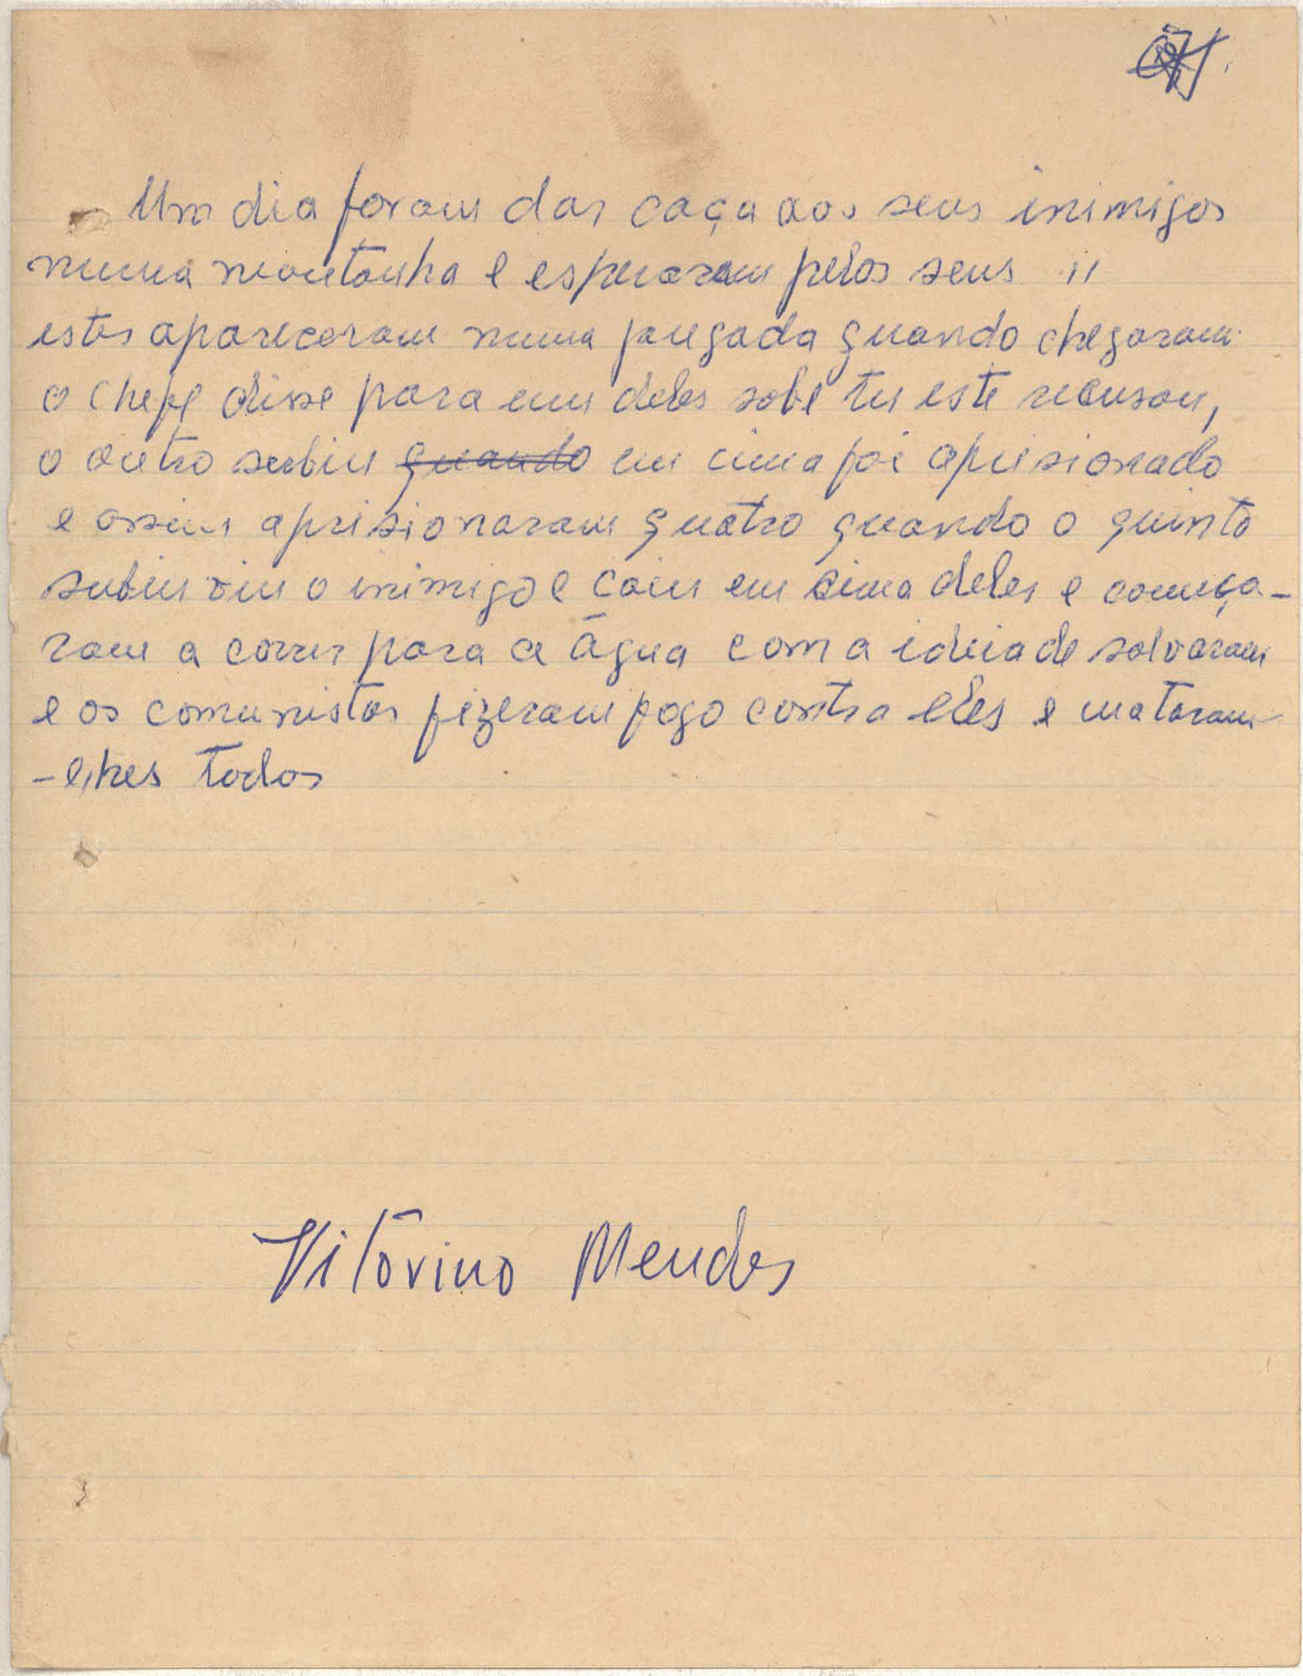 Um dia foram dar caça aos seus inimigos
numa montanha e esperaram pelos seus "
estes apareceram numa jangada quando chegaram
o chefe disse para um deles sobe tu este recusou,
o outro subiu quando em cima foi aprisionado
e assim aprisionaram quatro quando o quinto
subiu viu o inimigo e caiu em cima deles e começa-
ram a correr para a água com a ideia de salvaram
e os comunistas fizeram fogo contra eles e mataram
-lhes todos
Vitorino Mendes